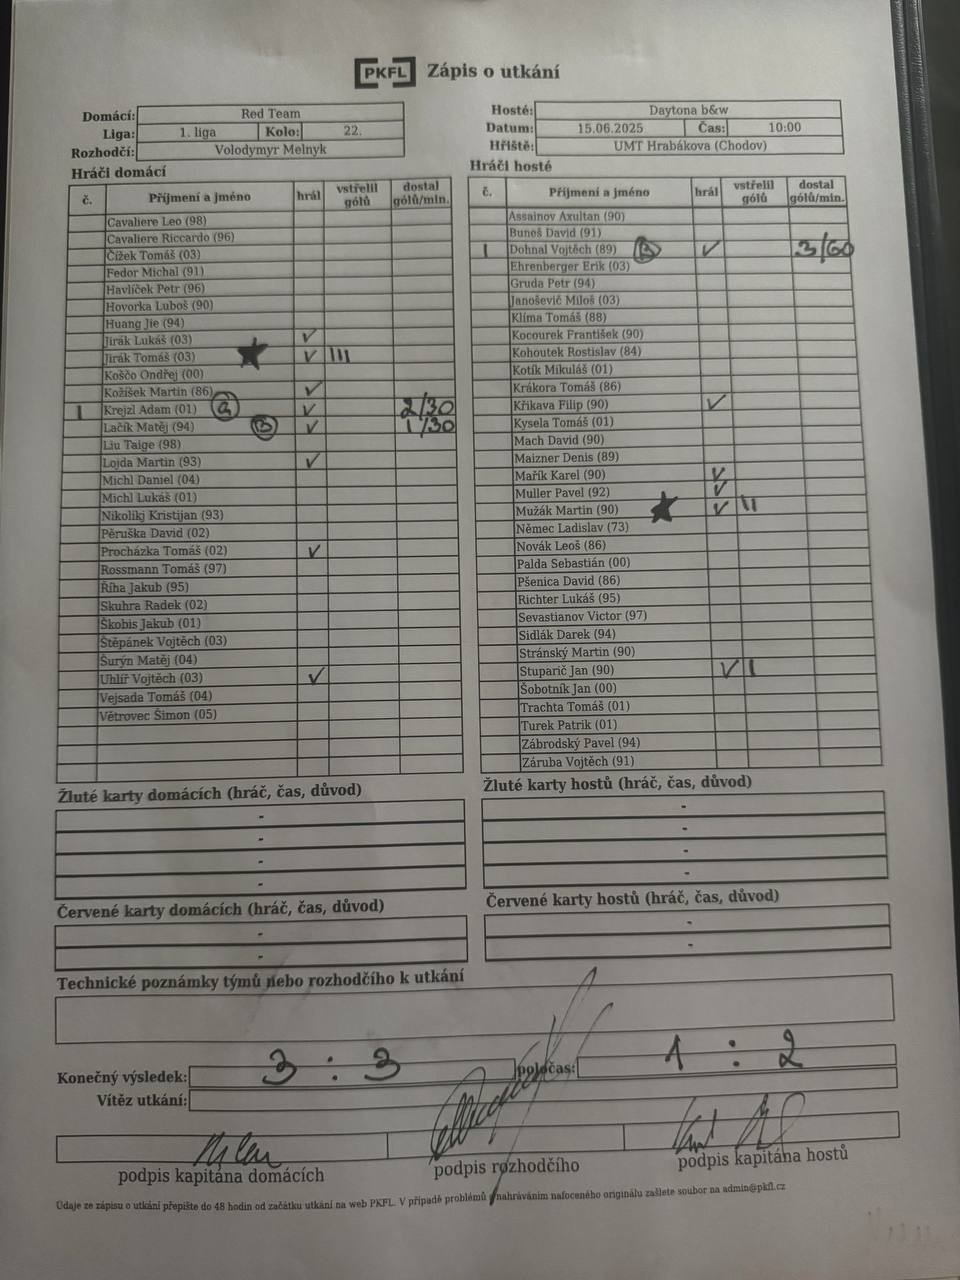 PKFL Zápis o utkání
Domácí: Red Team
Liga: 1. liga Kolo: 22.
Rozhodčí: Volodymyr Melnyk
Hosté: Daytona b&w
Datum: 15.06.2025 Čas: 10:00
Hřiště: UMT Hrabákova (Chodov)
Hráči domácí
č. Příjmení a jméno hrál vstřelil gólů dostal gólů/min.
Cavaliere Leo (98)
Cavaliere Riccardo (96)
Čížek Tomáš (03)
Fedor Michal (91)
Havlíček Petr (96)
Hovorka Luboš (90)
Huang Jie (94)
Jirák Lukáš (03) ✓
Jirák Tomáš (03) ★ ✓ III
Koščo Ondřej (00)
Kožíšek Martin (86) ✓
1 Krejzl Adam (01) ✓ 2/30
Lačík Matěj (94) B ✓ 1/30
Liu Taige (98)
Lojda Martin (93) ✓
Michl Daniel (04)
Michl Lukáš (01)
Nikolikj Kristijan (93)
Pěruška David (02)
Procházka Tomáš (02) ✓
Rossmann Tomáš (97)
Říha Jakub (95)
Skuhra Radek (02)
Škobis Jakub (01)
Štěpánek Vojtěch (03)
Šurýn Matěj (04)
Uhlíř Vojtěch (03) ✓
Vejsada Tomáš (04)
Větrovec Šimon (05)
Hráči hosté
č. Příjmení a jméno hrál vstřelil gólů dostal gólů/min.
Assainov Axultan (90)
Buneš David (91)
1 Dohnal Vojtěch (89) B ✓ 3/60
Ehrenberger Erik (03)
Gruda Petr (94)
Janoševič Miloš (03)
Klíma Tomáš (88)
Kocourek František (90)
Kohoutek Rostislav (84)
Kotík Mikuláš (01)
Krákora Tomáš (86)
Křikava Filip (90) ✓
Kysela Tomáš (01)
Mach David (90)
Maizner Denis (89)
Mařík Karel (90) ✓
Muller Pavel (92) ✓
Mužák Martin (90) ★ ✓ II
Němec Ladislav (73)
Novák Leoš (86)
Palda Sebastián (00)
Pšenica David (86)
Richter Lukáš (95)
Sevastianov Victor (97)
Sidlák Darek (94)
Stránský Martin (90)
Stuparič Jan (90) ✓ I
Šobotník Jan (00)
Trachta Tomáš (01)
Turek Patrik (01)
Zábrodský Pavel (94)
Záruba Vojtěch (91)
Žluté karty domácích (hráč, čas, důvod)
-
-
-
-
Žluté karty hostů (hráč, čas, důvod)
-
-
-
-
Červené karty domácích (hráč, čas, důvod)
-
-
Červené karty hostů (hráč, čas, důvod)
-
-
Technické poznámky týmů nebo rozhodčího k utkání
Konečný výsledek: 3 : 3 poločas: 1 : 2
Vítěz utkání:
podpis kapitána domácích podpis rozhodčího podpis kapitána hostů
Údaje ze zápisu o utkání přepište do 48 hodin od začátku utkání na web PKFL. V případě problémů nahráváním nafoceného originálu zašlete soubor na admin@pkfl.cz